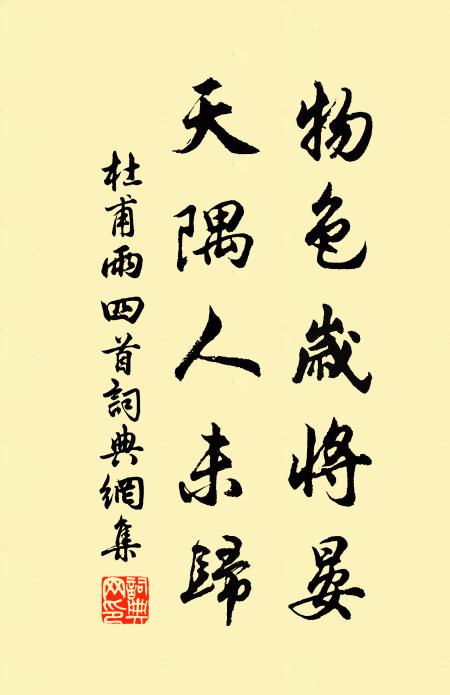 物色歲將晏
天隅人未歸
杜甫雨四首詞典網集
詞典
网印